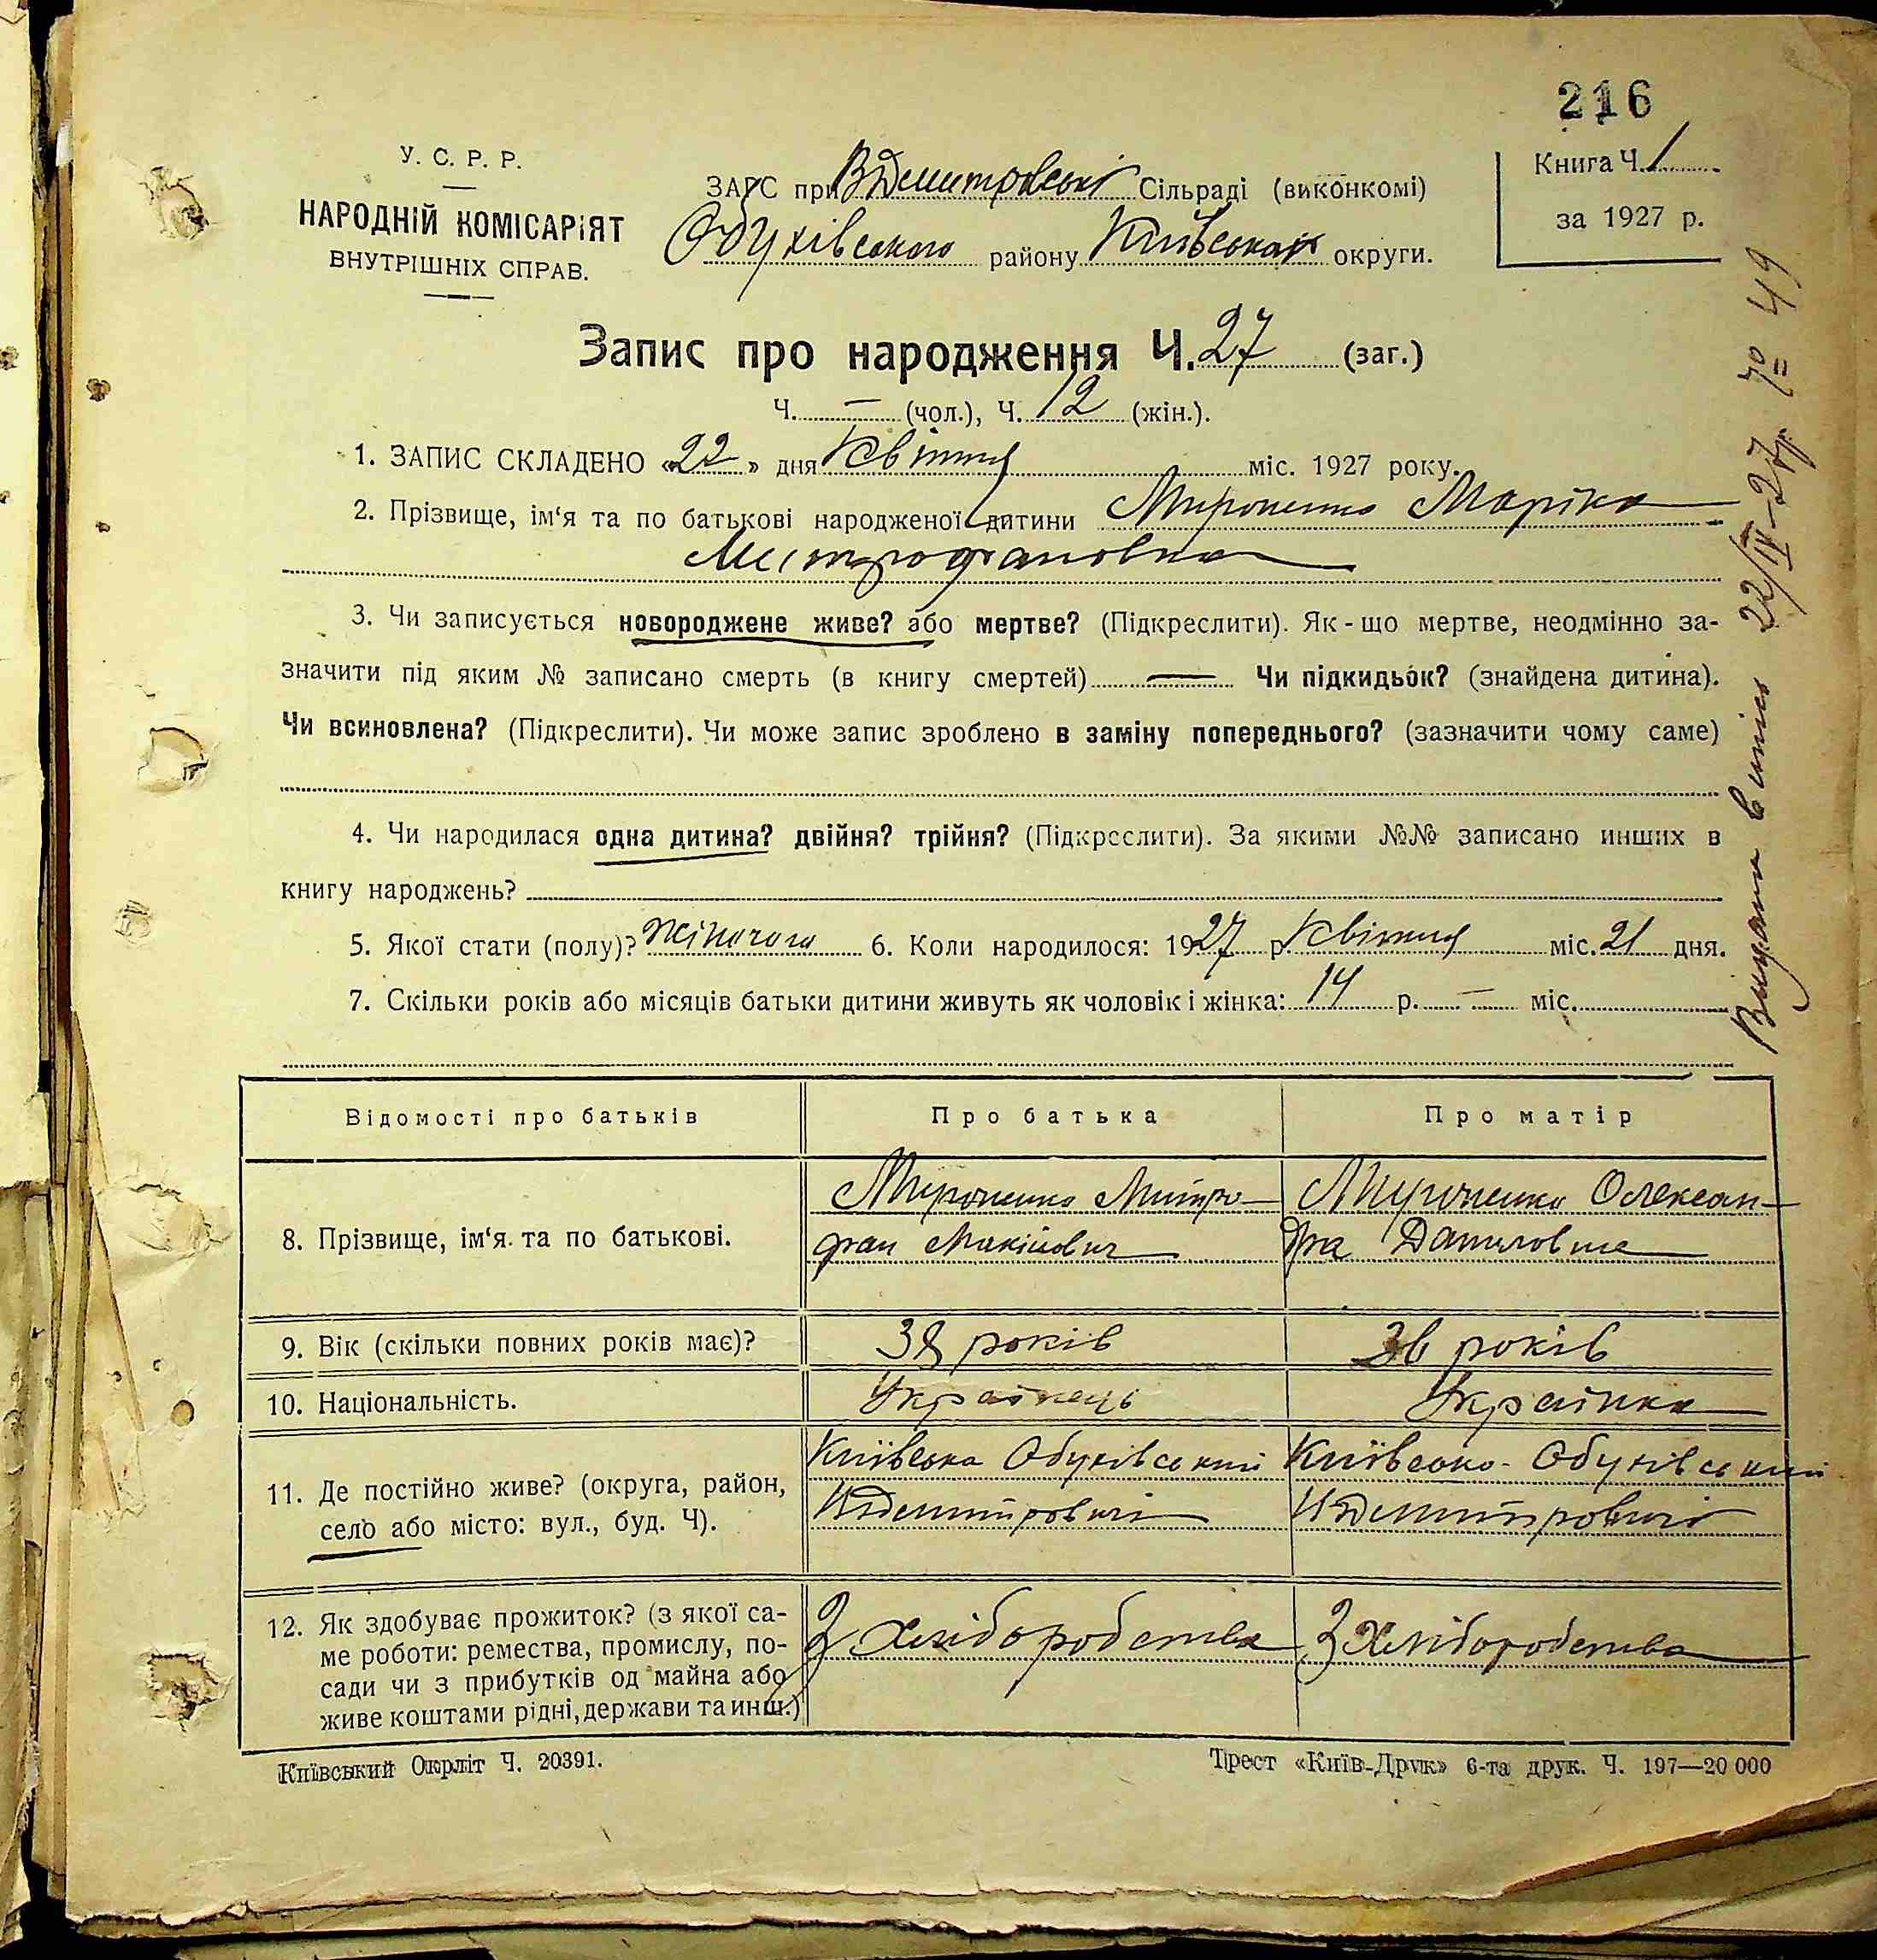 216
У. С. Р. Р.
НАРОДНІЙ КОМІСАРІЯТ
ВНУТРІШНІХ СПРАВ.
ЗАГС при ВДмитровські Сільраді (виконкомі)
Обухівського району Київської округи.
Книга Ч. 1
за 1927 р.
Запис про народження Ч. 27 (заг.)
Ч. — (чол.), Ч. 12 (жін.).
1. ЗАПИС СКЛАДЕНО «22» дня Квітня міс. 1927 року.
2. Прізвище, ім‘я та по батькові народженої дитини Мироненко Маріка
Митрофановна
3. Чи записується новороджене живе? або мертве? (Підкреслити). Як-що мертве, неодмінно за-
значити під яким № записано смерть (в книгу смертей) — Чи підкидьок? (знайдена дитина).
Чи всиновлена? (Підкреслити). Чи може запис зроблено в заміну попереднього? (зазначити чому саме)
4. Чи народилася одна дитина? двійня? трійня? (Підкреслити). За якими №№ записано инших в
книгу народжень?
5. Якої стати (полу)? Жіночого 6. Коли народилося: 1927 р. Квітня міс. 21 дня.
7. Скільки років або місяців батьки дитини живуть як чоловік і жінка: 14 р. — міс.
Видана витяг 22/IV-27р. № 49
Відомості про батьків Про батька Про матір
8. Прізвище, ім‘я та по батькові.
Мироненко Митро-
фан Макімович
Мироненко Олексан-
дра Даниловна
9. Вік (скільки повних років має)? 38 років 36 років
10. Національність. Українець Українка
11. Де постійно живе? (округа, район,
село або місто: вул., буд. Ч).
Київська Обухівський
Київсько-Обухівський
12. Як здобуває прожиток? (з якої са-
ме роботи: ремества, промислу, по-
сади чи з прибутків од майна або
живе коштами рідні, держави та инш.)
З хліборобства
З Хліборобства
Київський Окрліт Ч. 20391.
Трест «Київ-Друк» 6-та друк. Ч. 197—20 000